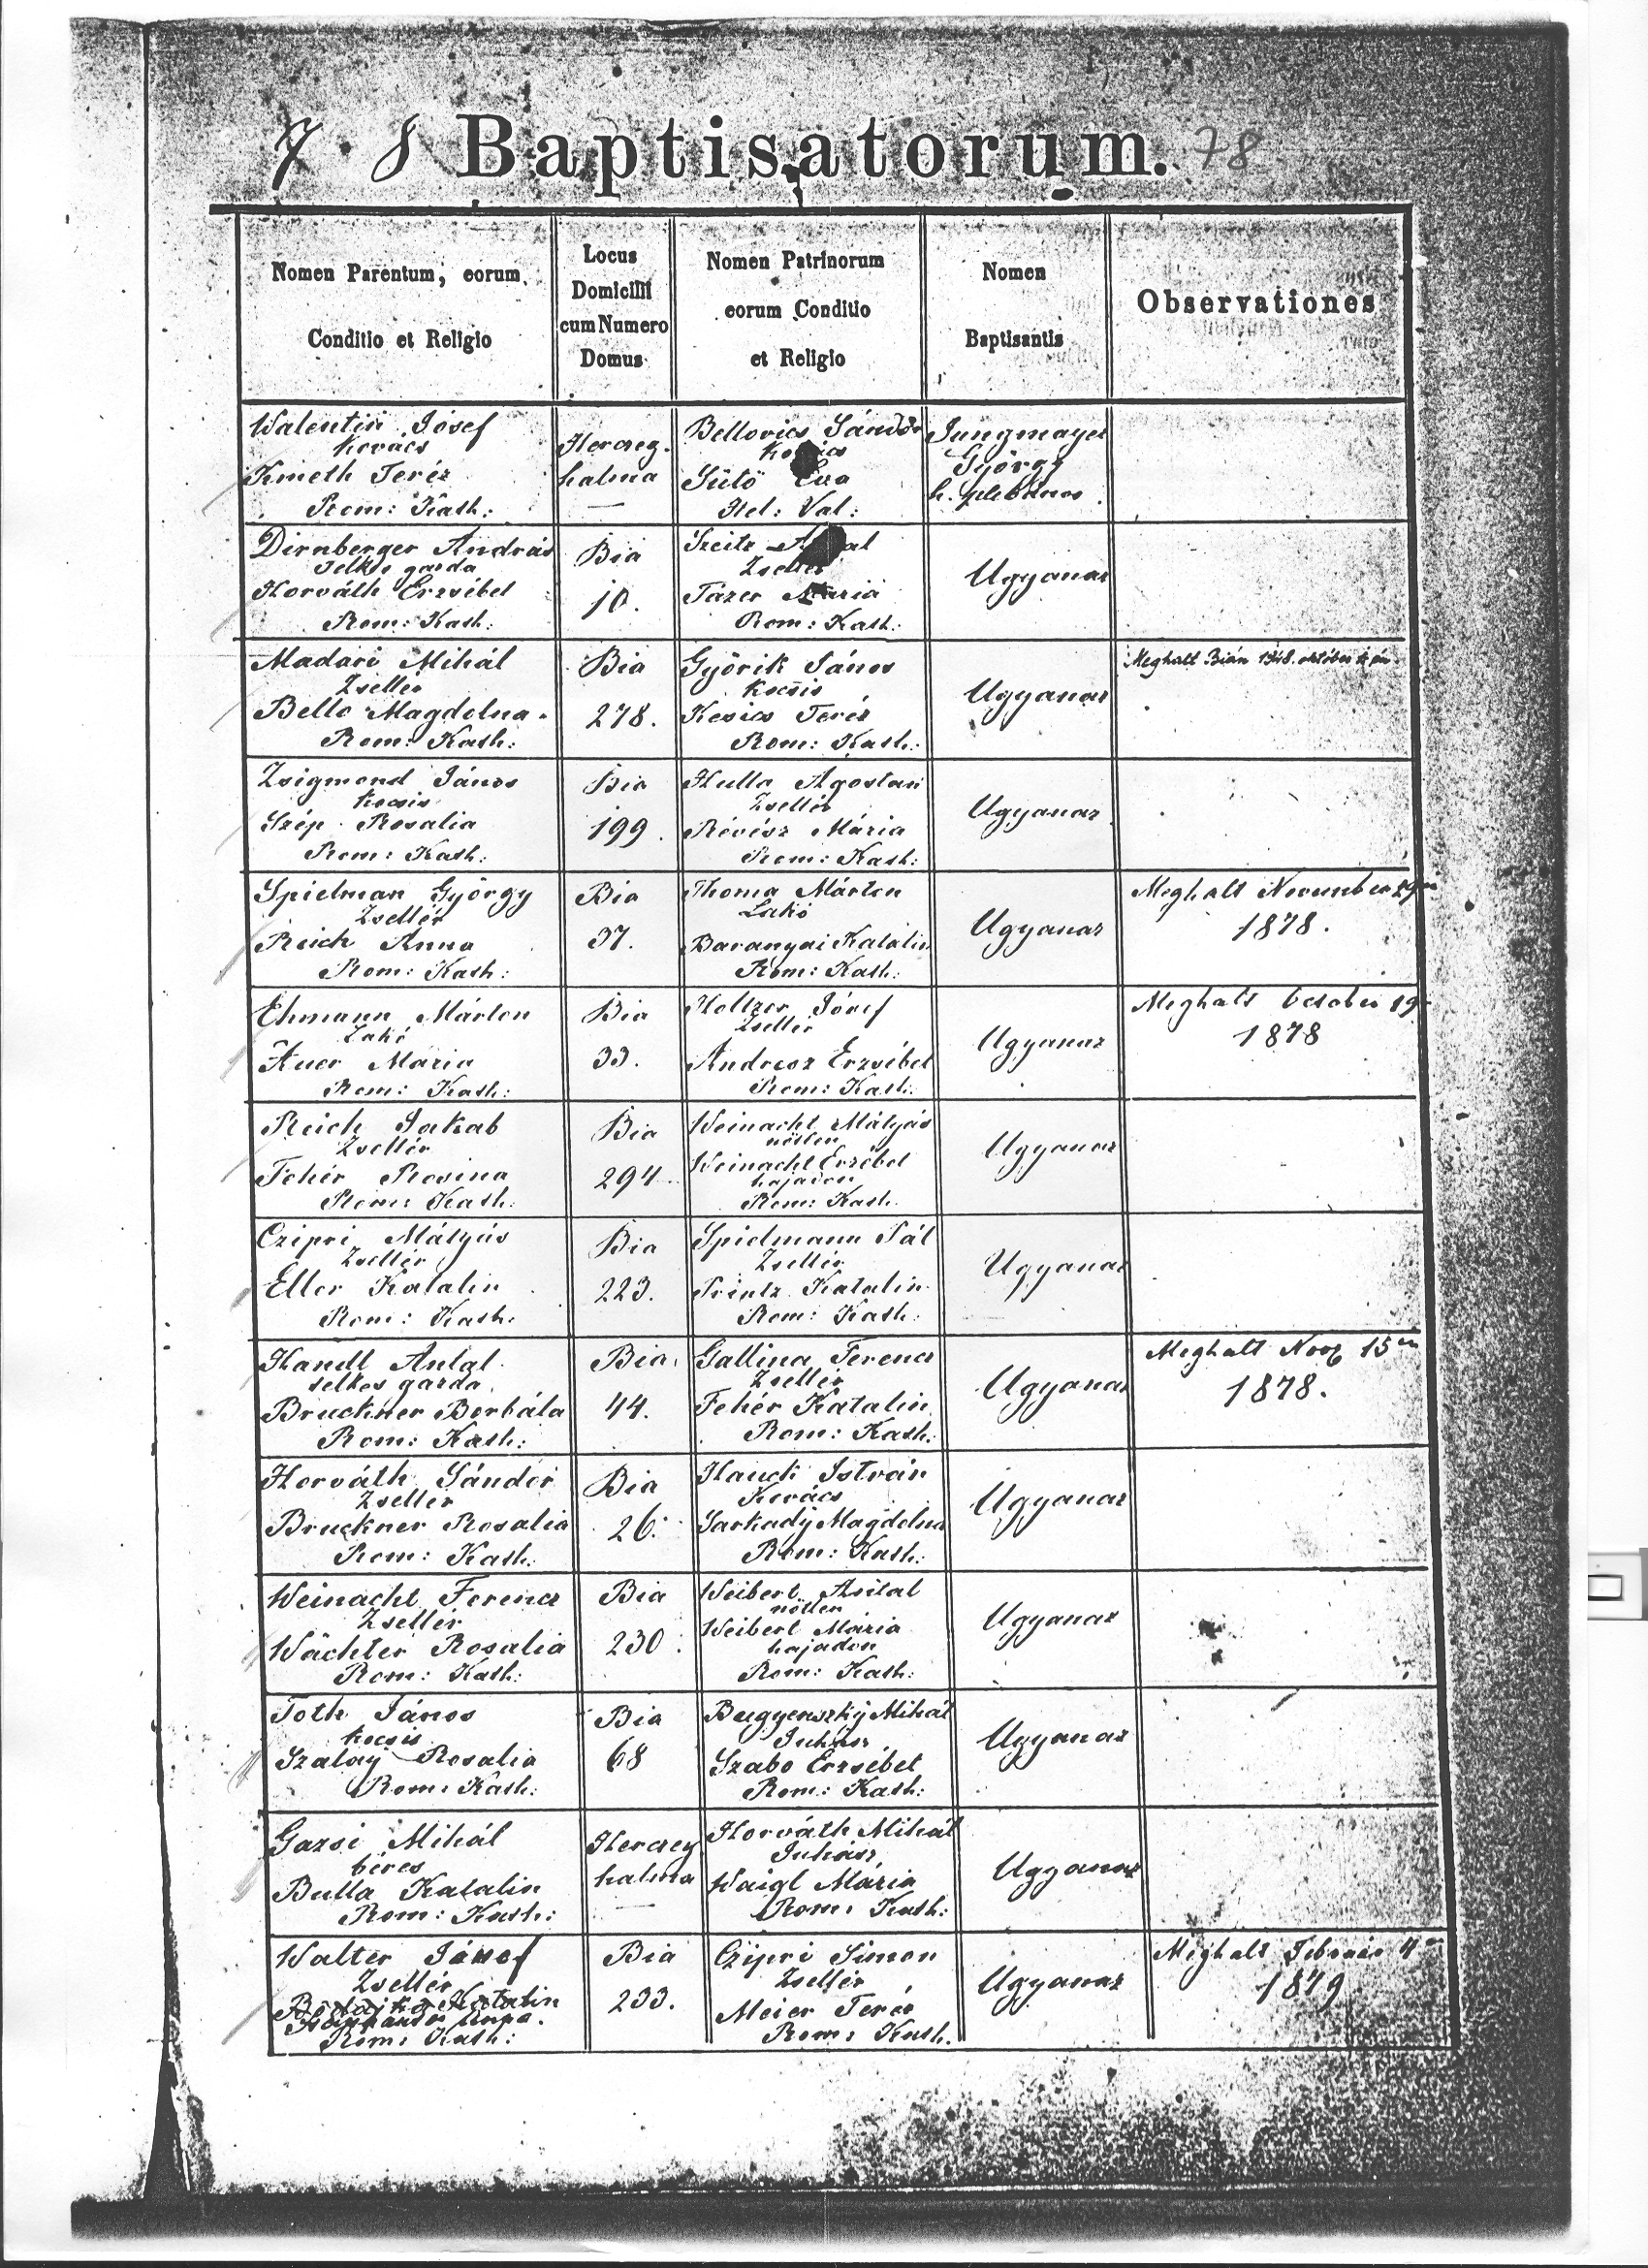 7. 8 Baptisatorum. 78
Nomen Parentum, eorum
Conditio et Religio
Locus
Domicilii
cum Numero
Domus
Nomen Patrinorum
eorum Conditio
et Religio
Nomen
Baptisantis
Observationes
Walentin Jósef
Kovács
Kmeth Teréz
Rom: Kath:
Herczeg-
halma
—
Bellovics Sándor
Sütö Éva
Hel: Val:
Jungmayer
György
h. plébános
Dirnberger András
telkes gazda
Horváth Erzsébet
Rom: Kath:
Bia
10.
Szeitz
Zsellér
Tázer Mária
Rom: Kath:
Ugyanaz
Madari Mihál
Zsellér
Bello Magdolna
Rom: Kath:
Bia
278.
Györik János
Kocsis
Kesics Teréz
Rom: Kath:
Ugyanaz
Meghalt Bián 1948. október
Zsigmond János
Kocsis
Szép Rosalia
Rom: Kath:
Bia
199.
Hulla Ágostan
Zsellér
Révész Mária
Rom: Kath:
Ugyanaz
Spielman György
Zsellér
Reich Anna
Rom: Kath:
Bia
37.
Thoma Márton
Lakó
Baranyai Katalin
Rom: Kath:
Ugyanaz
Meghalt November 29n
1878.
Ehmann Márton
Lakó
Auer Maria
Rom: Kath:
Bia
33.
Holtzer Jósef
Zsellér
Andresz Erzsébet
Rom: Kath:
Ugyanaz
Meghalt October 19
1878
Reich Jakab
Zsellér
Fehér Rosina
Rom: Kath:
Bia
294
Weinacht Mátyás
nötlen
Weinacht Erzébet
hajadon
Rom: Kath.
Ugyanaz
Czipri Mátyás
Zsellér
Eller Katalin
Rom: Kath.
Bia
223.
Spielmann Pál
Zsellér
Printz Katalin
Rom: Kath:
Ugyanaz
Handl Antal
telkes gazda
Bruckner Borbála
Rom: Kath:
Bia
44.
Gallina Ferencz
Zsellér
Fehér Katalin
Rom: Kath:
Ugyanaz
Meghalt Nov 15én
1878.
Horváth Sándor
Zsellér
Bruckner Rosalia
Rom: Kath:
Bia
26.
Hauck István
Kovács
Sarkady Magdolna
Rom: Kath:
Ugyanaz
Weinacht Ferencz
Zsellér
Wächter Rosalia
Rom: Kath:
Bia
230.
Weibert Antal
nötlen
Weibert Mária
hajadon
Rom: Kath:
Ugyanaz
Toth János
kocsis
Szalay Rosalia
Rom: Kath:
Bia
68
Bugyenszky Mihál
Juhász
Szabo Erzsébet
Rom: Kath:
Ugyanaz
Gazsi Mihál
béres
Bulla Katalin
Rom: Kath:
Herczeg
halma
—
Horváth Mihál
Juhász
Waigl Mária
Rom: Kath:
Ugyanaz
Walter Jósef
Zsellér
Katalin
Anna.
Rom: Kath:
Bia
233.
Czipri Simon
Zsellér
Meier Teréz
Rom: Kath.
Ugyanaz
Meghalt Február 4én
1879